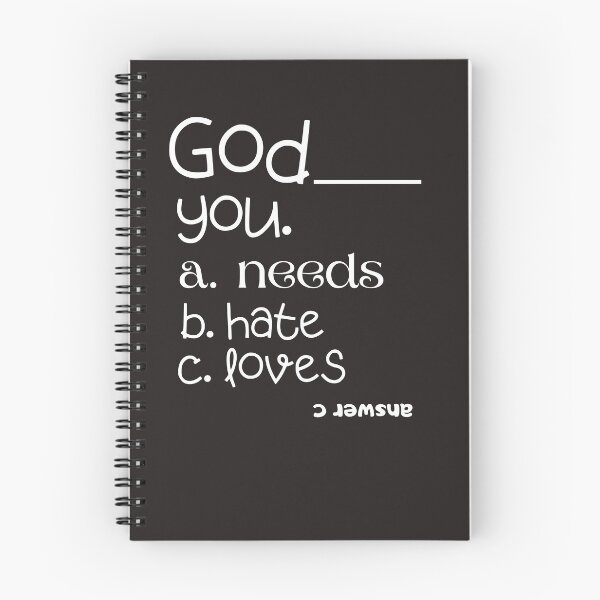 God___
you.
a. needs
b. hate
c. loves
answer c